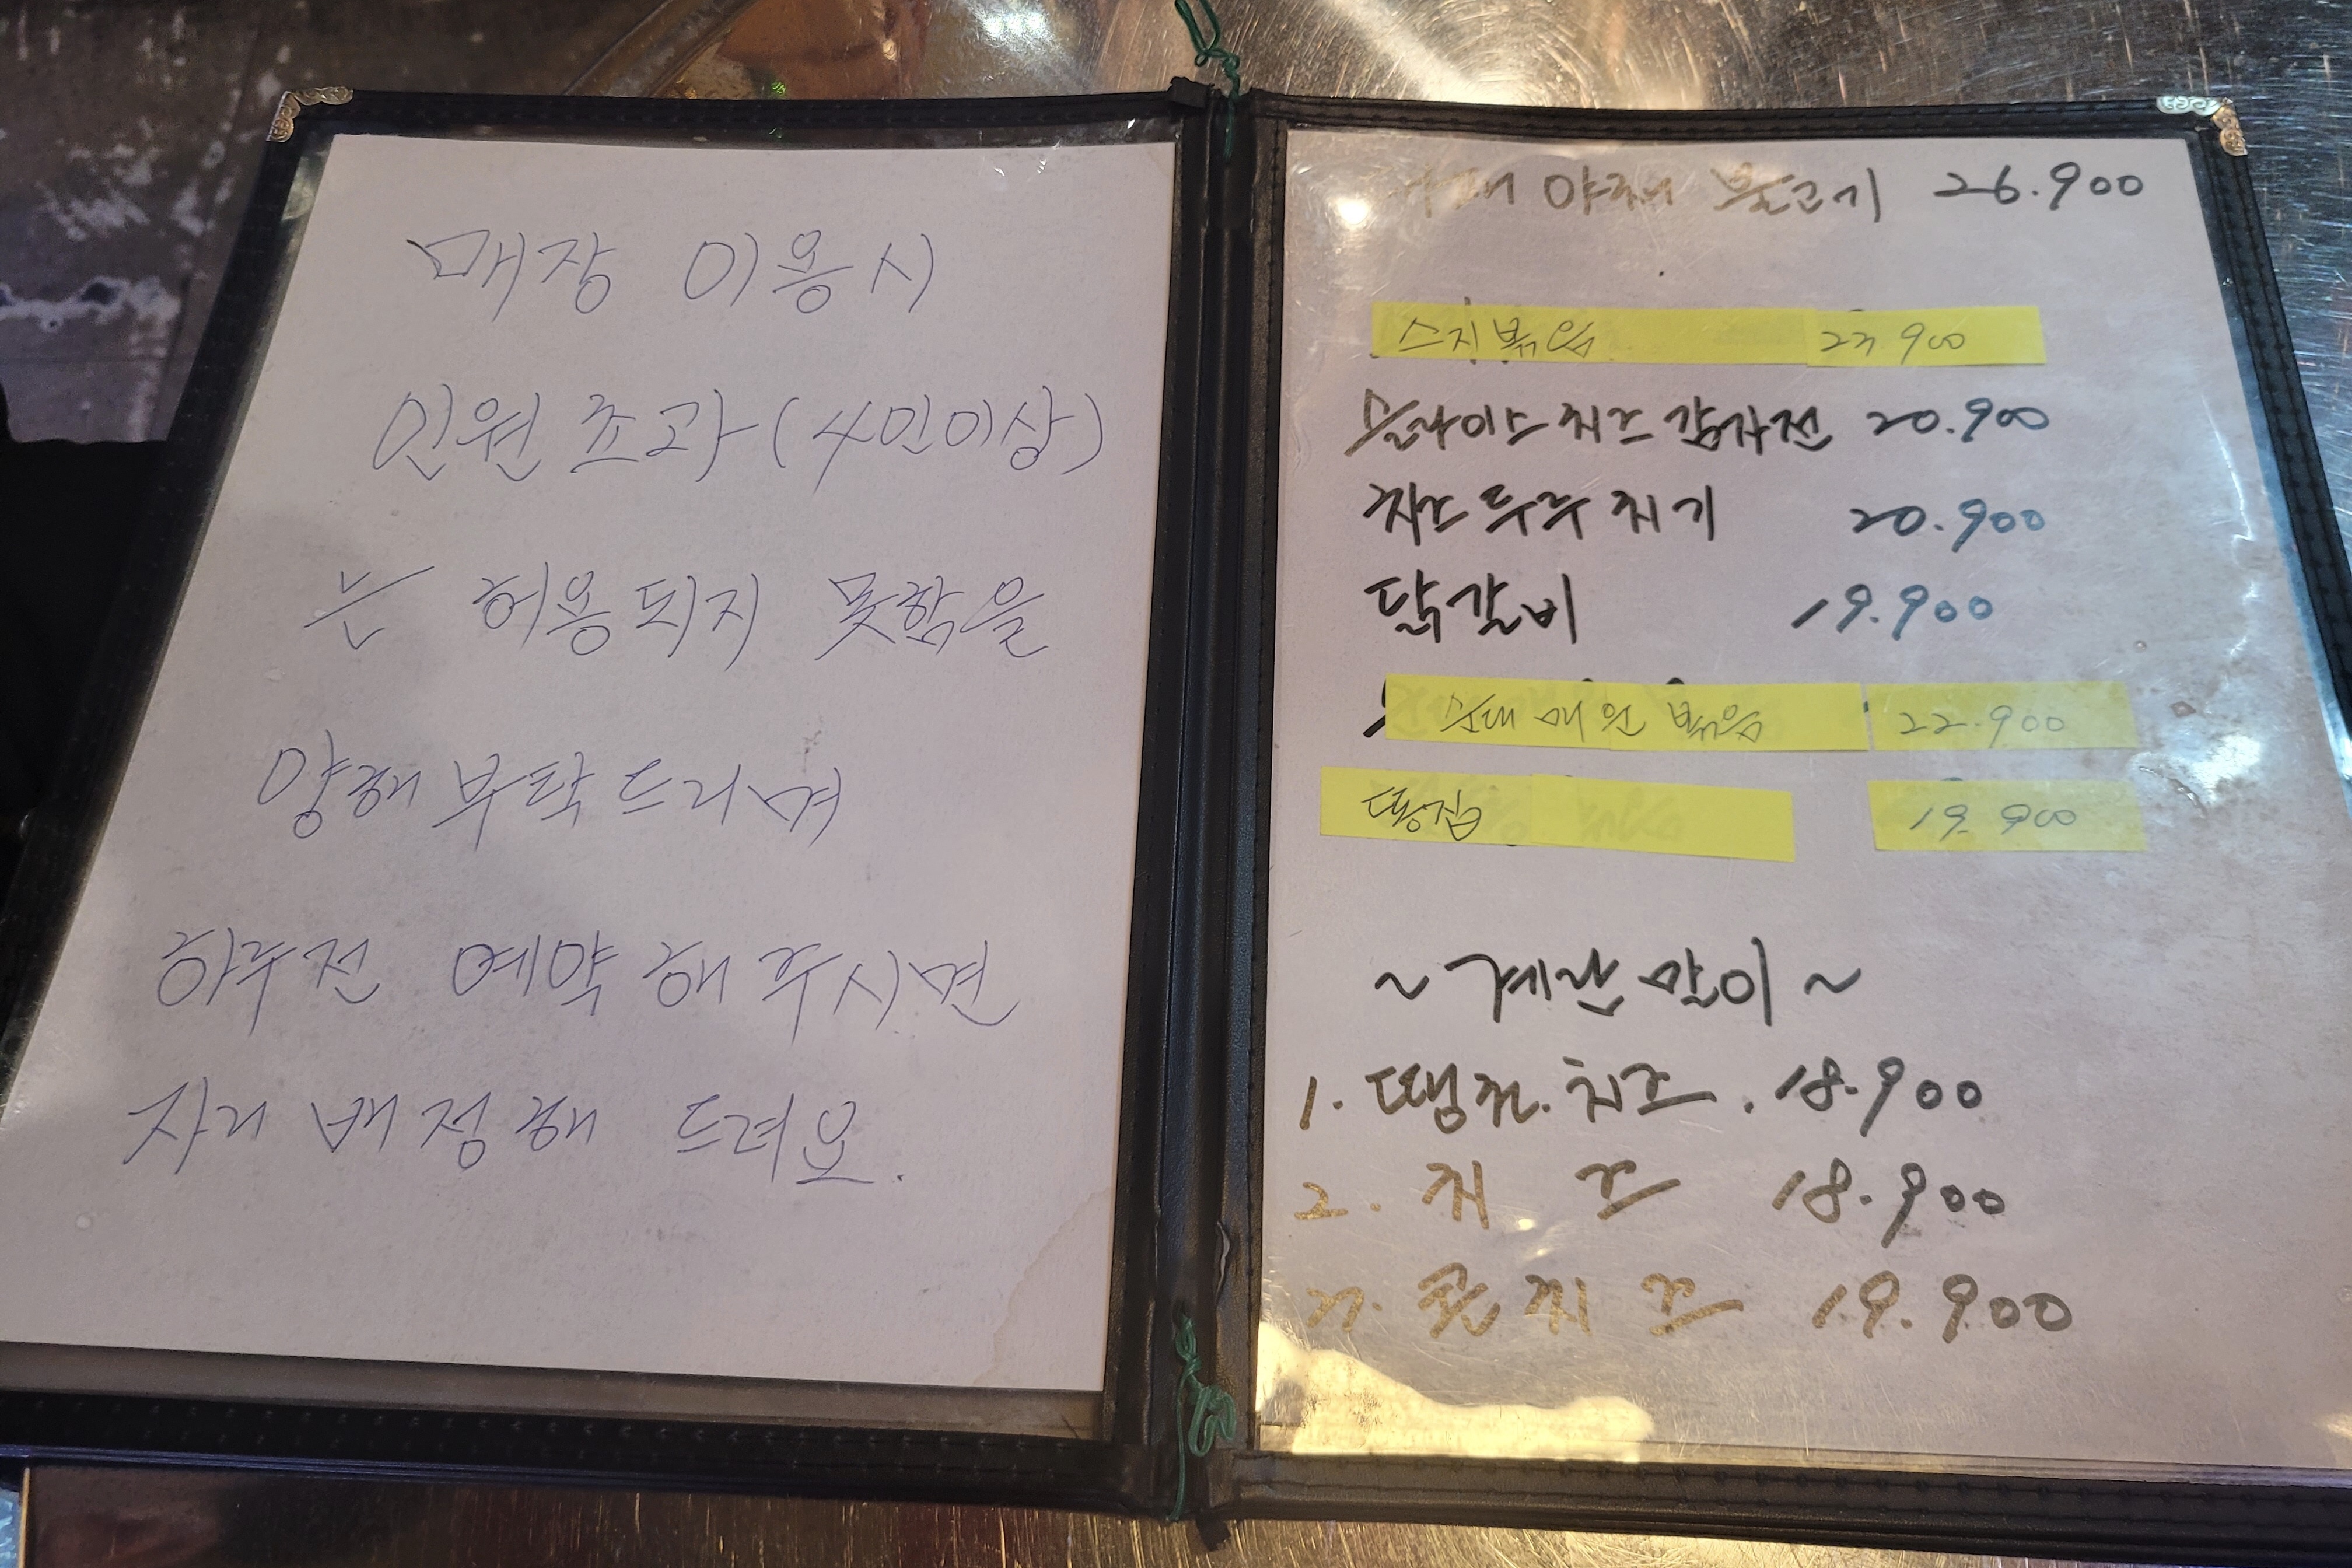 매장 이용시
인원 초과 (4인이상)
는 허용되지 못함을
양해 부탁드리며
하루전 예약해주시면
자리 배정해 드려요.
야채 불고기 26.900
스지볶음 23 900
슬라이스 치즈 감자전 20.900
치즈두루치기 20.900
닭갈비 19.900
순대 매운 볶음 22.900
똥집 19.900
~계란말이~
1. 땡초.치즈. 18.900
2. 치즈 18.900
3. 콘치즈 19.900